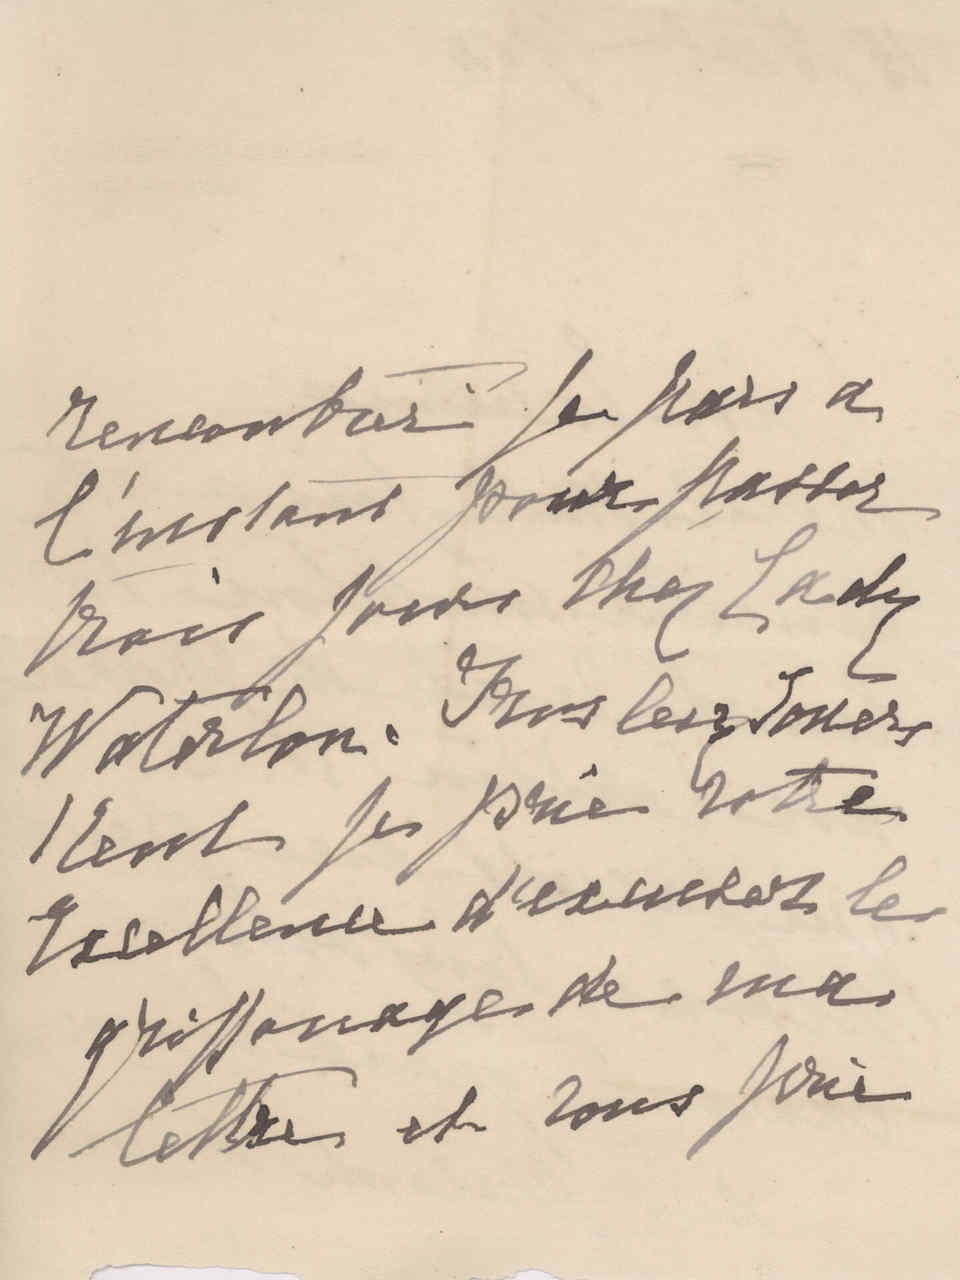 rencontrer je pars a
l'instant pour passer
trois jours chez Lady
Waterlou. Tous les
je prie votre
Excellence d'excuser le
griffonage de ma
lettre et vous prie